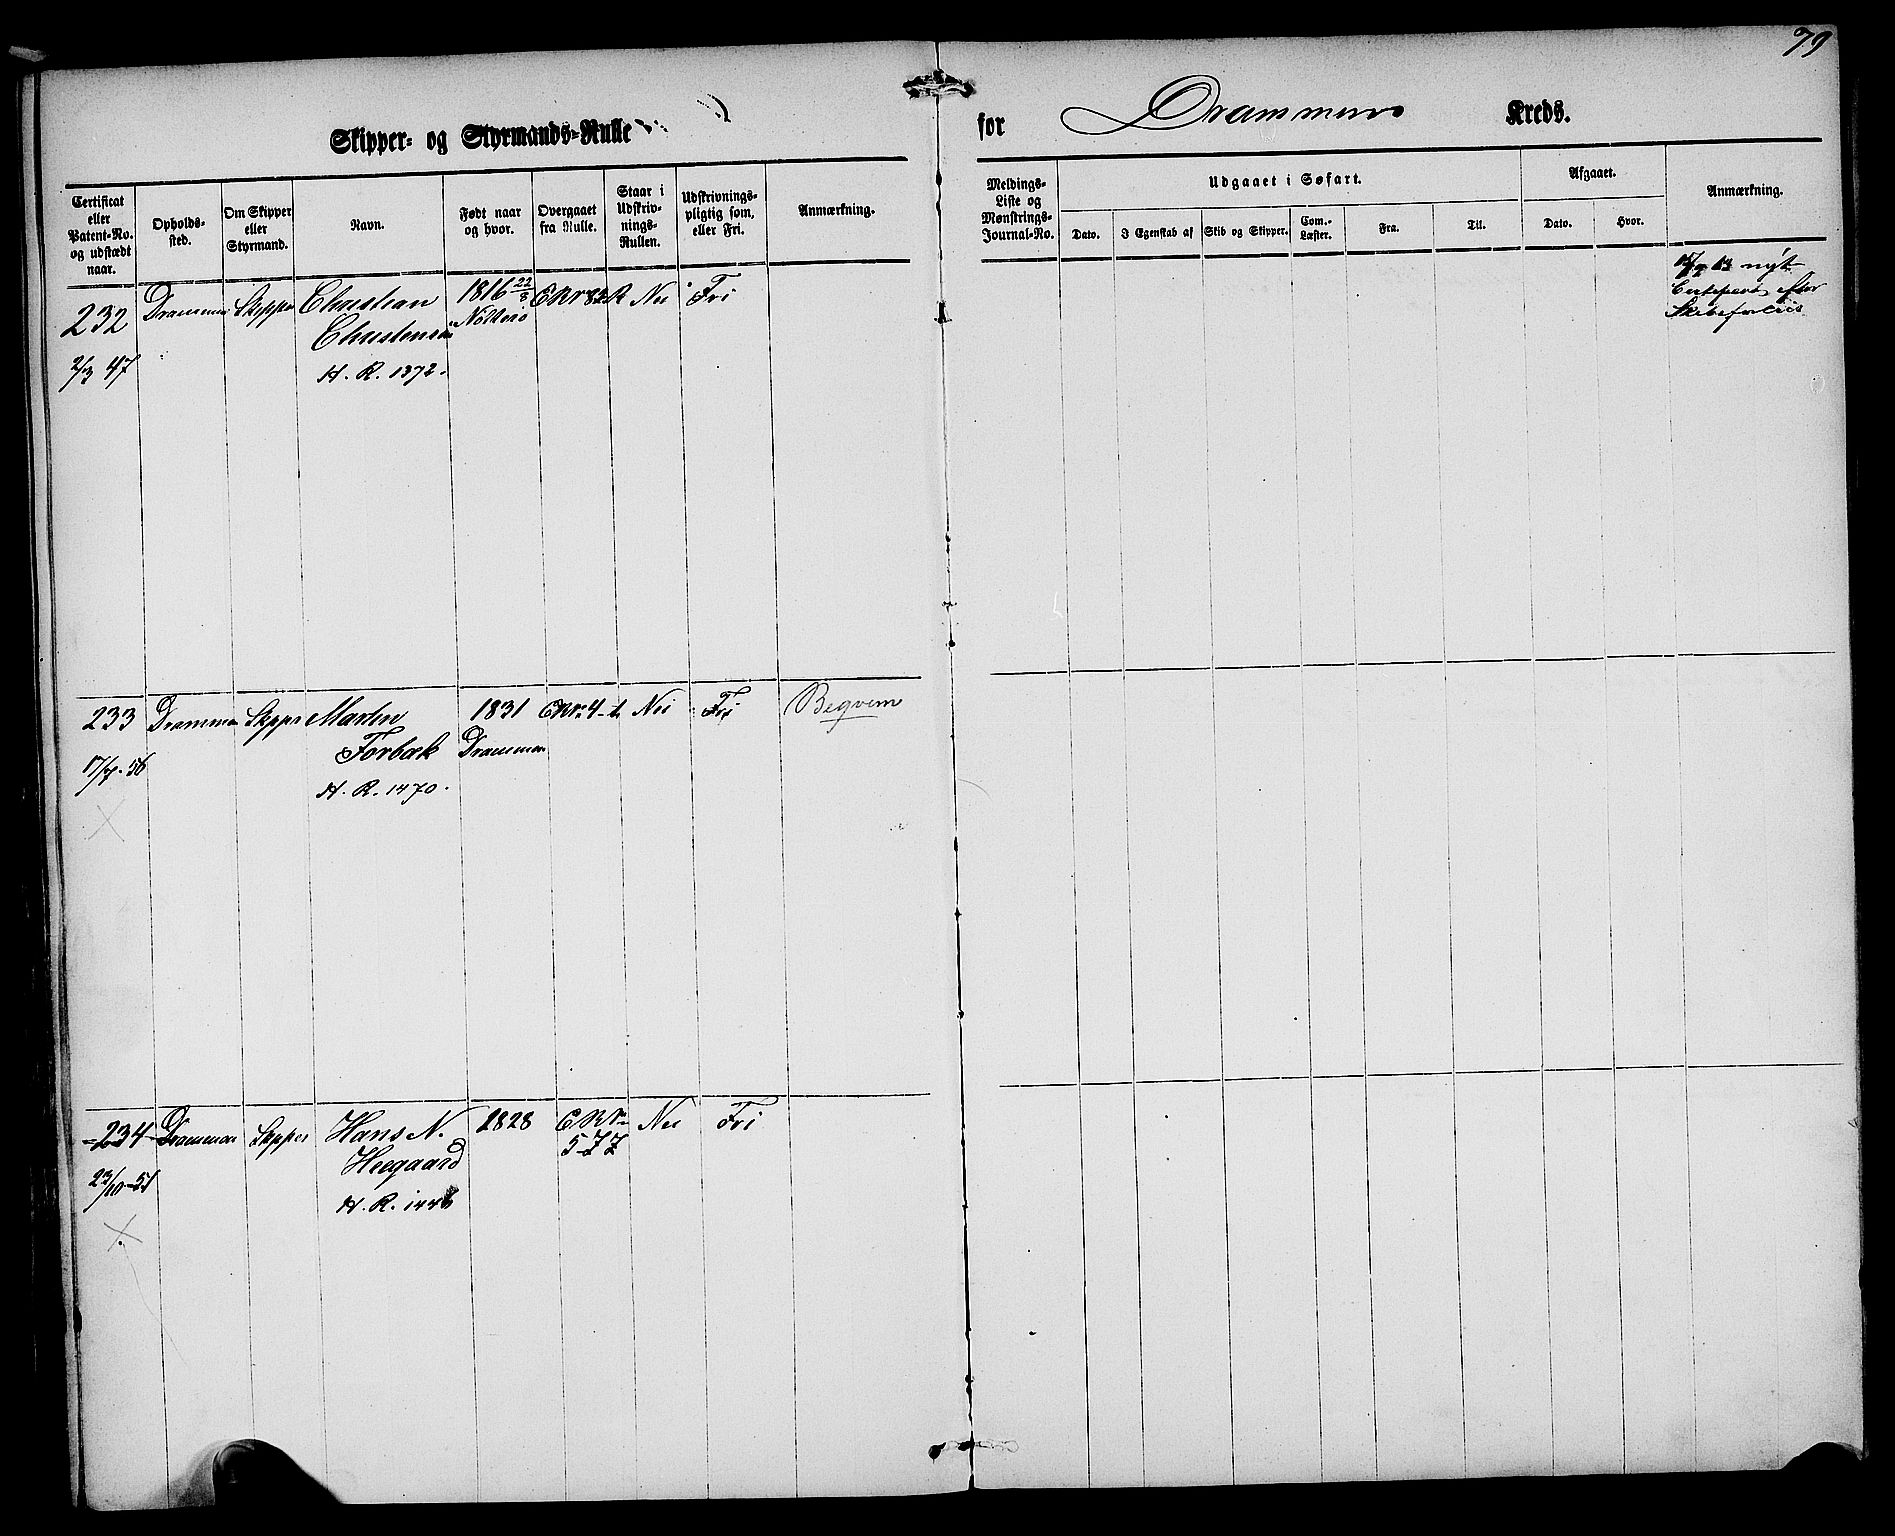 79
Skipper- og Styrmands-Rulle
for Drammens Kreds.
Certificat eller Patent-No. og udstædt naar.
Opholds-sted.
Om Skipper eller Styrmand.
Navn.
Født naar og hvor.
Overgaaet fra Rulle.
Staar i Udskriv-nings-Rullen.
Udskrivnings-pligtig som, eller Fri.
Anmærkning.
Meldings-Liste og Mønstrings-Journal-No.
Udgaaet i Søfart.
Dato.
I Egenskab af
Skib og Skipper.
Com.-Læster.
Fra.
Til.
Afgaaet.
Dato.
Hvor.
Anmærkning.
232 Drammen Skipper Christian 1816 22/8 Nei Fri
Christensen Nötterö
2/3 47
H. R. 1372.
nyt
efter
233 Drammen Skipper Martin 1831 Nei Fri Begvem
Forbæk Drammen
17/7 - 56
H. R. 1470.
234 Drammen Skipper Hans N. 1828 Nei Fri
Heegaard 577
23/10 - 51
H. R. 1446